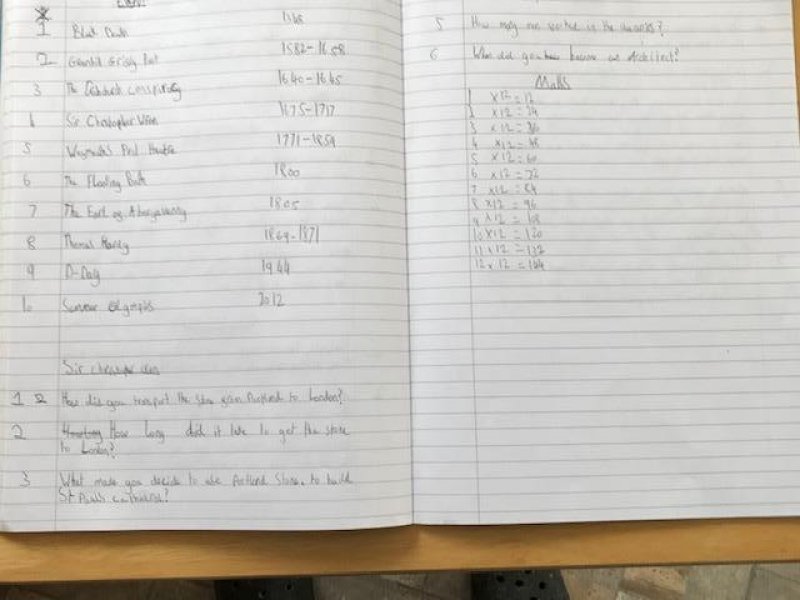 1 Black Death
2 Granfil Grisly Past 1582-1658
3 The conspiracy 1640-1645
4 Sir Christopher Wren 1675-1717
5 1771-1854
6 The Floating Bath 1800
7 The Earl of Abergavenny 1805
8 Thomas Hardy 1869-1871
9 D-Day 1944
10 Summer Olympics 2012
Sir Christopher Wren
1 How did you transport the stone from Portland to London?
2 How long did it take to get the stone
to London?
3 What made you decide to use Portland Stone to build
St Pauls cathedral?
5 How many men worked in the quarries?
6 When did you become an Architect?
Maths
1 x12 = 12
2 x12 = 24
3 x12 = 36
4 x12 = 48
5 x12 = 60
6 x12 = 72
7 x12 = 84
8 x12 = 96
9 x12 = 108
10 x12 = 120
11 x12 = 132
12 x 12 = 144